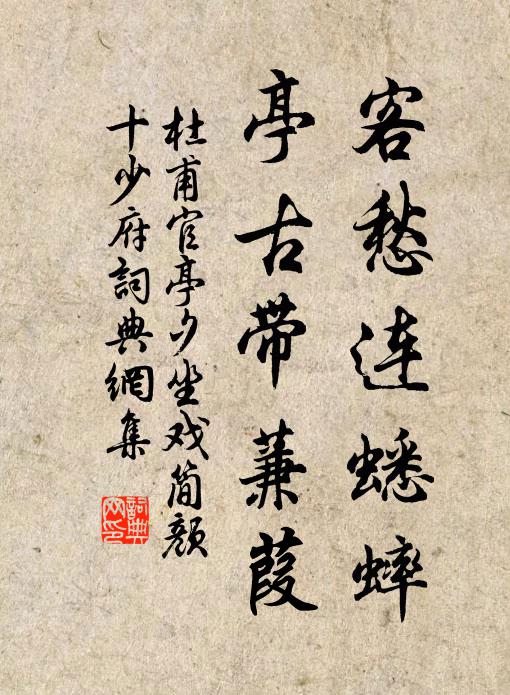 客愁连蟋蟀
亭古带蒹葭
杜甫官亭夕坐戏简颜
十少府詞典網集
詞典
网印